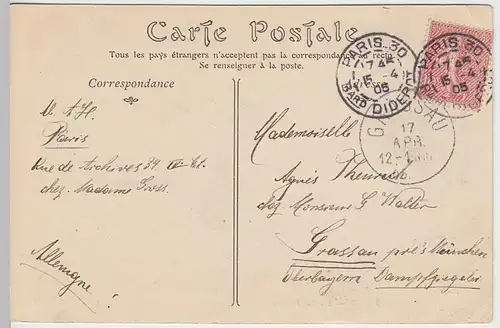 Carte Postale
Tous les pays étrangers n'acceptent pas la correspondance au recto
Se renseigner à la poste.
Correspondance
M. A. H.
Paris
Rue de Archives 34. IV Et.
chez Madame Gross.
Allemagne!
PARIS 30
15 -4
05
GARE DIDEROT
PARIS 30
15 -4
05
GRASSAU
17
APR.
12-1
Mademoiselle
Agnès
chez Monsieur G. Walter
Grassau près München
Oberbayern Dampfziegelei